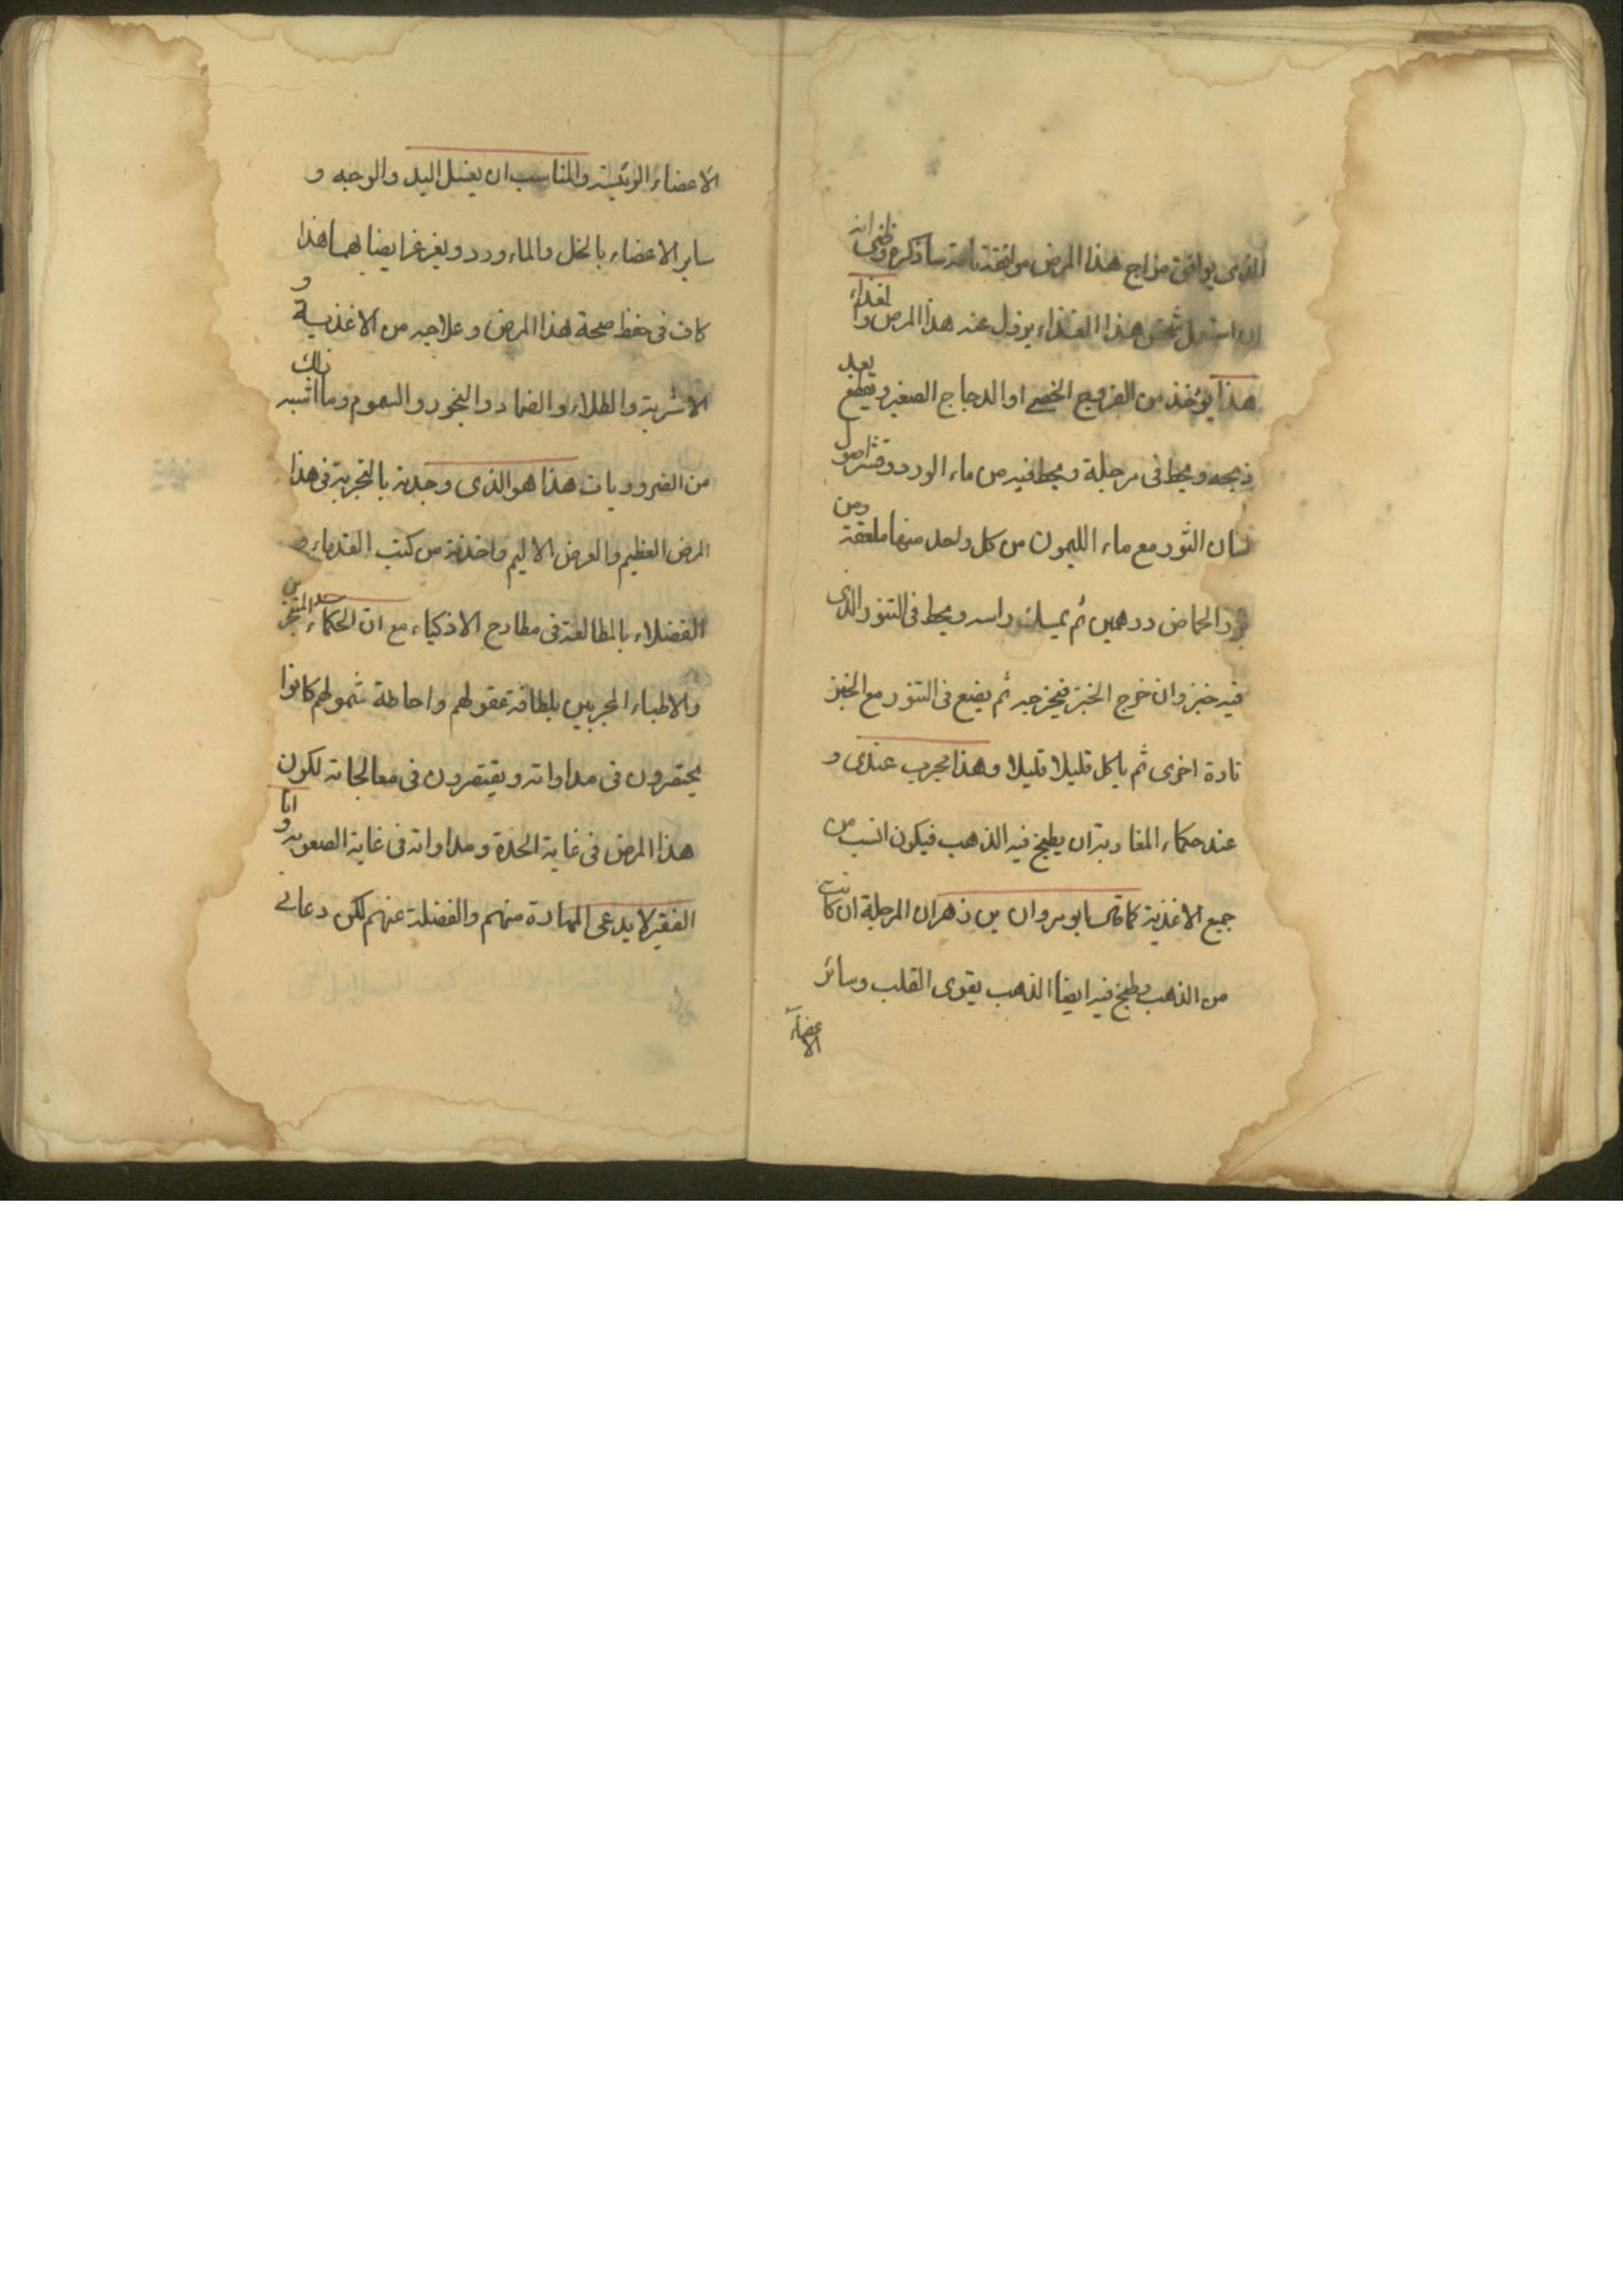 الذى يوافق مزاج هذا المرض موافقة تامة ساذكره وظنى انه
ان استعمل شخص هذا الغذاء يزول عنه هذا المرض والغذاء
هذا يؤخذ من الفروج الخصى او الدجاج الصغير ويقطع بعد
ذبحه ويحط فى مرجلة ويحط فيه من ماء الورد وقشر اصول
لسان الثور مع ماء الليمون من كل واحد منها ملعقة ومن
بزر الحماض درهمين ثم يمسك راسه ويحط فى التنور الذى
فيه خبز وان خرج الخبز فيخرجه ثم يضع فى التنور مع الخبز
تارة اخرى ثم ياكل قليلا قليلا وهذا مجرب عندى و
عند حكماء المغاربة ان يطبخ فيه الذهب فيكون انسب من
جميع الاغذية كما قال ابو مروان بن زهر ان المرجلة ان كانت
من الذهب وطبخ فيه ايضا الذهب يقوى القلب وسائر
الاعضاء
الاعضاء الرئيسة والمناسب ان يغسل اليد والوجه و
ساير الاعضاء بالخل والماء ورد ويغرغر ايضا بهما هذا
كاف فى حفظ صحة هذا المرض وعلاجه من الاغذية و
الاشربة والطلاء والضماد والبخور والشموم وما اشبه ذلك
من الضروريات هذا هو الذى وجدته بالتجربة فى هذا
المرض العظيم والعرض الاليم واخذته من كتب القدماء و
الفضلاء بالمطالعة فى مطارح الاذكياء مع ان الحكماء المتبحرين
والاطباء المجربين بلطافة عقولهم واحاطة شمولهم كانوا
يحتقرون فى مداواته ويفتقرون فى معالجاته لكون
هذا المرض فى غاية الحدة ومداواته فى غاية الصعوبة وانا
الفقير لا يدعى المهارة منهم والفضلة عنهم لكن دعانى